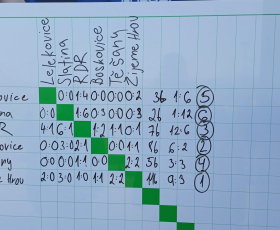 Lelekovice Slatina RDR Boskovice Ješany Žijeme Hrou
ovice 0:0 1:4 0:0 0:0 0:2 3b 1:6 5
na 0:0 1:6 0:3 0:0 0:3 2b 1:12 6
R 4:1 6:1 1:2 1:1 0:1 7b 12:6 3
ovice 0:0 3:0 2:1 0:0 1:1 8b 6:2 2
ny 0:0 0:0 1:1 0:0 2:2 5b 3:3 4
e Hrou 2:0 3:0 1:0 1:1 2:2 11b 9:3 1